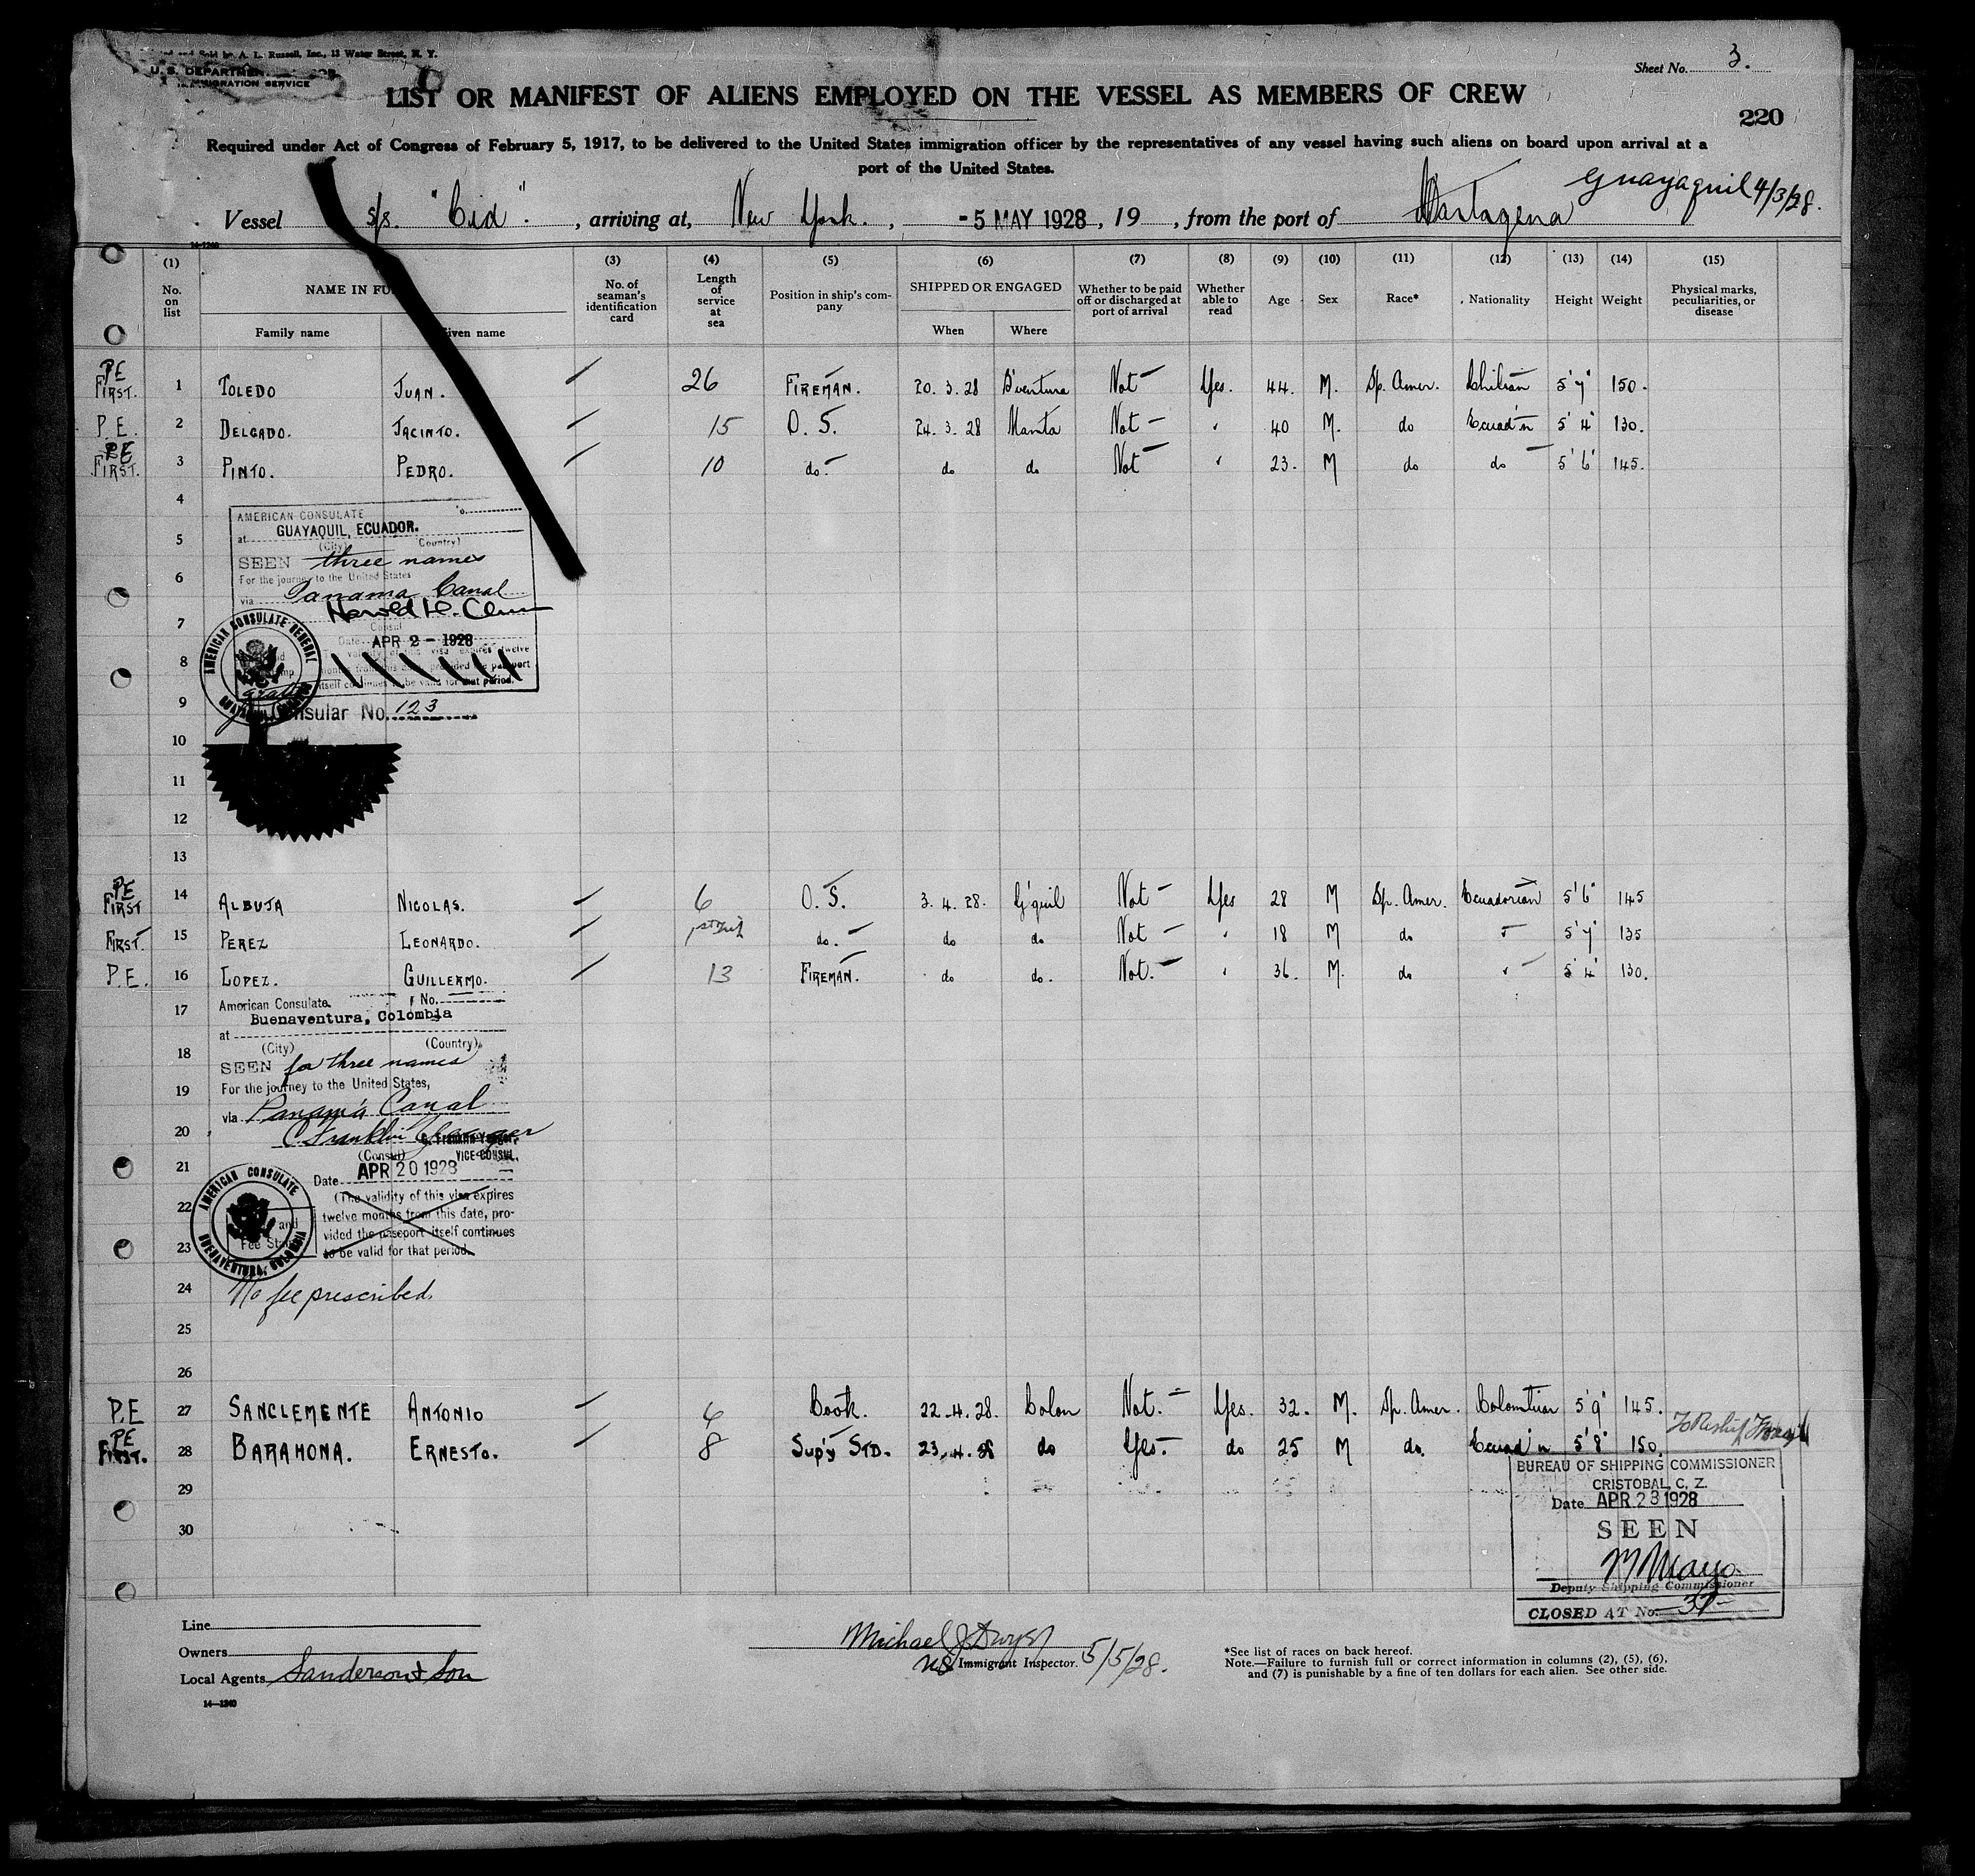 and Sold by A. L. Russell, Inc., 13 Water Street, N. Y.
U. S. DEPARTMENT
IMMIGRATION SERVICE
Sheet No. 3.
LIST OR MANIFEST OF ALIENS EMPLOYED ON THE VESSEL AS MEMBERS OF CREW
220
Required under Act of Congress of February 5, 1917, to be delivered to the United States immigration officer by the representatives of any vessel having such aliens on board upon arrival at a
port of the United States.
Guayaquil 4/3/28.
Vessel s/s. "Cid". , arriving at, New York. , -5 MAY 1928, 19 , from the port of Cartagena
14-1240
(1) (3) (4) (5) (6) (7) (8) (9) (10) (11) (12) (13) (14) (15)
No. on list NAME IN FU No. of seaman's identification card Length of service at sea Position in ship's company SHIPPED OR ENGAGED Whether to be paid off or discharged at port of arrival Whether able to read Age Sex Race* Nationality Height Weight Physical marks, peculiarities, or disease
Family name Given name When Where
PE FIRST. 1 TOLEDO JUAN. 26 FIREMAN. 20. 3. 28 B'ventura Not Yes. 44. M. Sp. Amer. Chilian 5' 7" 150.
P.E. 2 DELGADO. JACINTO. 15 O. S. 24. 3. 28 Manta Not 40 M. do Ecuad'n 5' 4" 130.
PE FIRST. 3 PINTO. PEDRO. 10 do. do do Not 23. M do do 5' 6" 145.
4
AMERICAN CONSULATE
5
at GUAYAQUIL, ECUADOR.
(City) Country)
SEEN three names
6
For the journey to the United States
via Panama Canal
Harold H. Clum
7
Consul
Date APR 2 - 1928
validity of this visa expires twelve
8
months from this date, provided the passport
itself continues to be valid for that period.
AMERICAN CONSULATE GENERAL
gratis
9
Consular No. 123
10
11
12
13
PE FIRST 14 ALBUJA NICOLAS. 6 O. S. 3. 4. 28. G'quil Not Yes 28 M Sp. Amer. Ecuadorian 5' 6" 145
FIRST. 15 PEREZ LEONARDO. 1st Trip do. do do Not 18 M do 5' 7" 135
P.E. 16 LOPEZ. GUILLERMO. 13 FIREMAN. do do. Not. 36. M. do 5' 4" 130.
American Consulate. No.
17
Buenaventura, Colombia
at
(City) (Country)
18
SEEN for three names
19
For the journey to the United States,
via Panama Canal
20
C Franklin Yeager
(Consul) VICE CONSUL.
21
Date APR 20 1928
(The validity of this visa expires
22
twelve months from this date, pro-
vided the passport itself continues
23
to be valid for that period.
AMERICAN CONSULATE BUENAVENTURA, COLOMBIA
and
Fee Stamp
24
No fee prescribed.
25
26
P.E 27 SANCLEMENTE ANTONIO 6 Cook. 22-4. 28. Colon Not. Yes. 32. M. Sp. Amer. Colombian 5' 9" 145.
PE FIRST. 28 BARAHONA. ERNESTO. 8 Sup'y STD. 23. 4. 28 do Yes. do 25 M do. Ecuad'n 5' 8" 150. To Reship Foreign
29
30
BUREAU OF SHIPPING COMMISSIONER
CRISTOBAL, C. Z.
Date APR 23 1928
SEEN
M Mayo
Deputy Shipping Commissioner
CLOSED AT No. 37
Line
Owners
Local Agents Sanderson & Son
14—1240
Michael J Dwyer
US Immigrant Inspector. 5/5/28.
*See list of races on back hereof.
Note.—Failure to furnish full or correct information in columns (2), (5), (6),
and (7) is punishable by a fine of ten dollars for each alien. See other side.